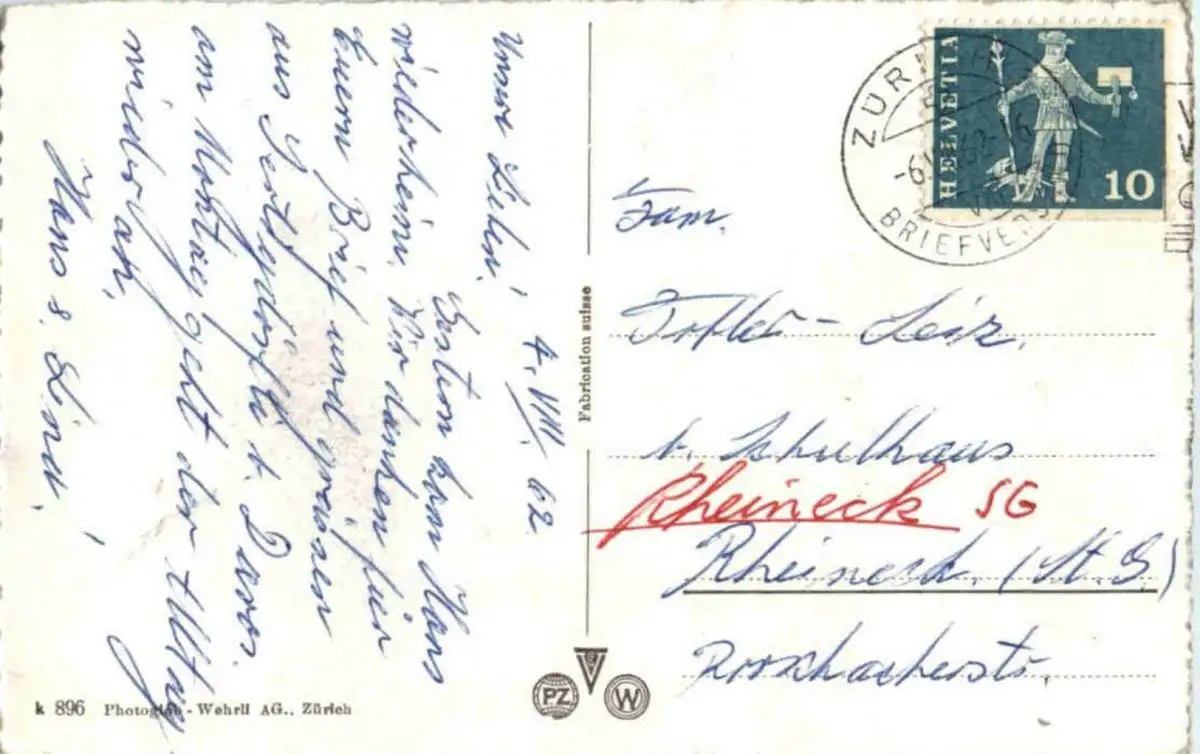 4. VIII. 62
Unsere Lieben!
Gestern kam Hans
wieder heim. Wir danken für
Euern Brief und grüssen
aus Sertigdörfli b. Davos.
am Montag geht der Alltag
wieder an.
Hans & Lina
Fabrication suisse
k 896 Photoglob-Wehrli AG., Zürich
PZ
W
HELVETIA
10
ZÜR
-6. 62-16
BRIEFVERS
Fam.
b. Schulhaus
Rheineck SG
Rheineck. (St. G.)
Rorschacherstr.